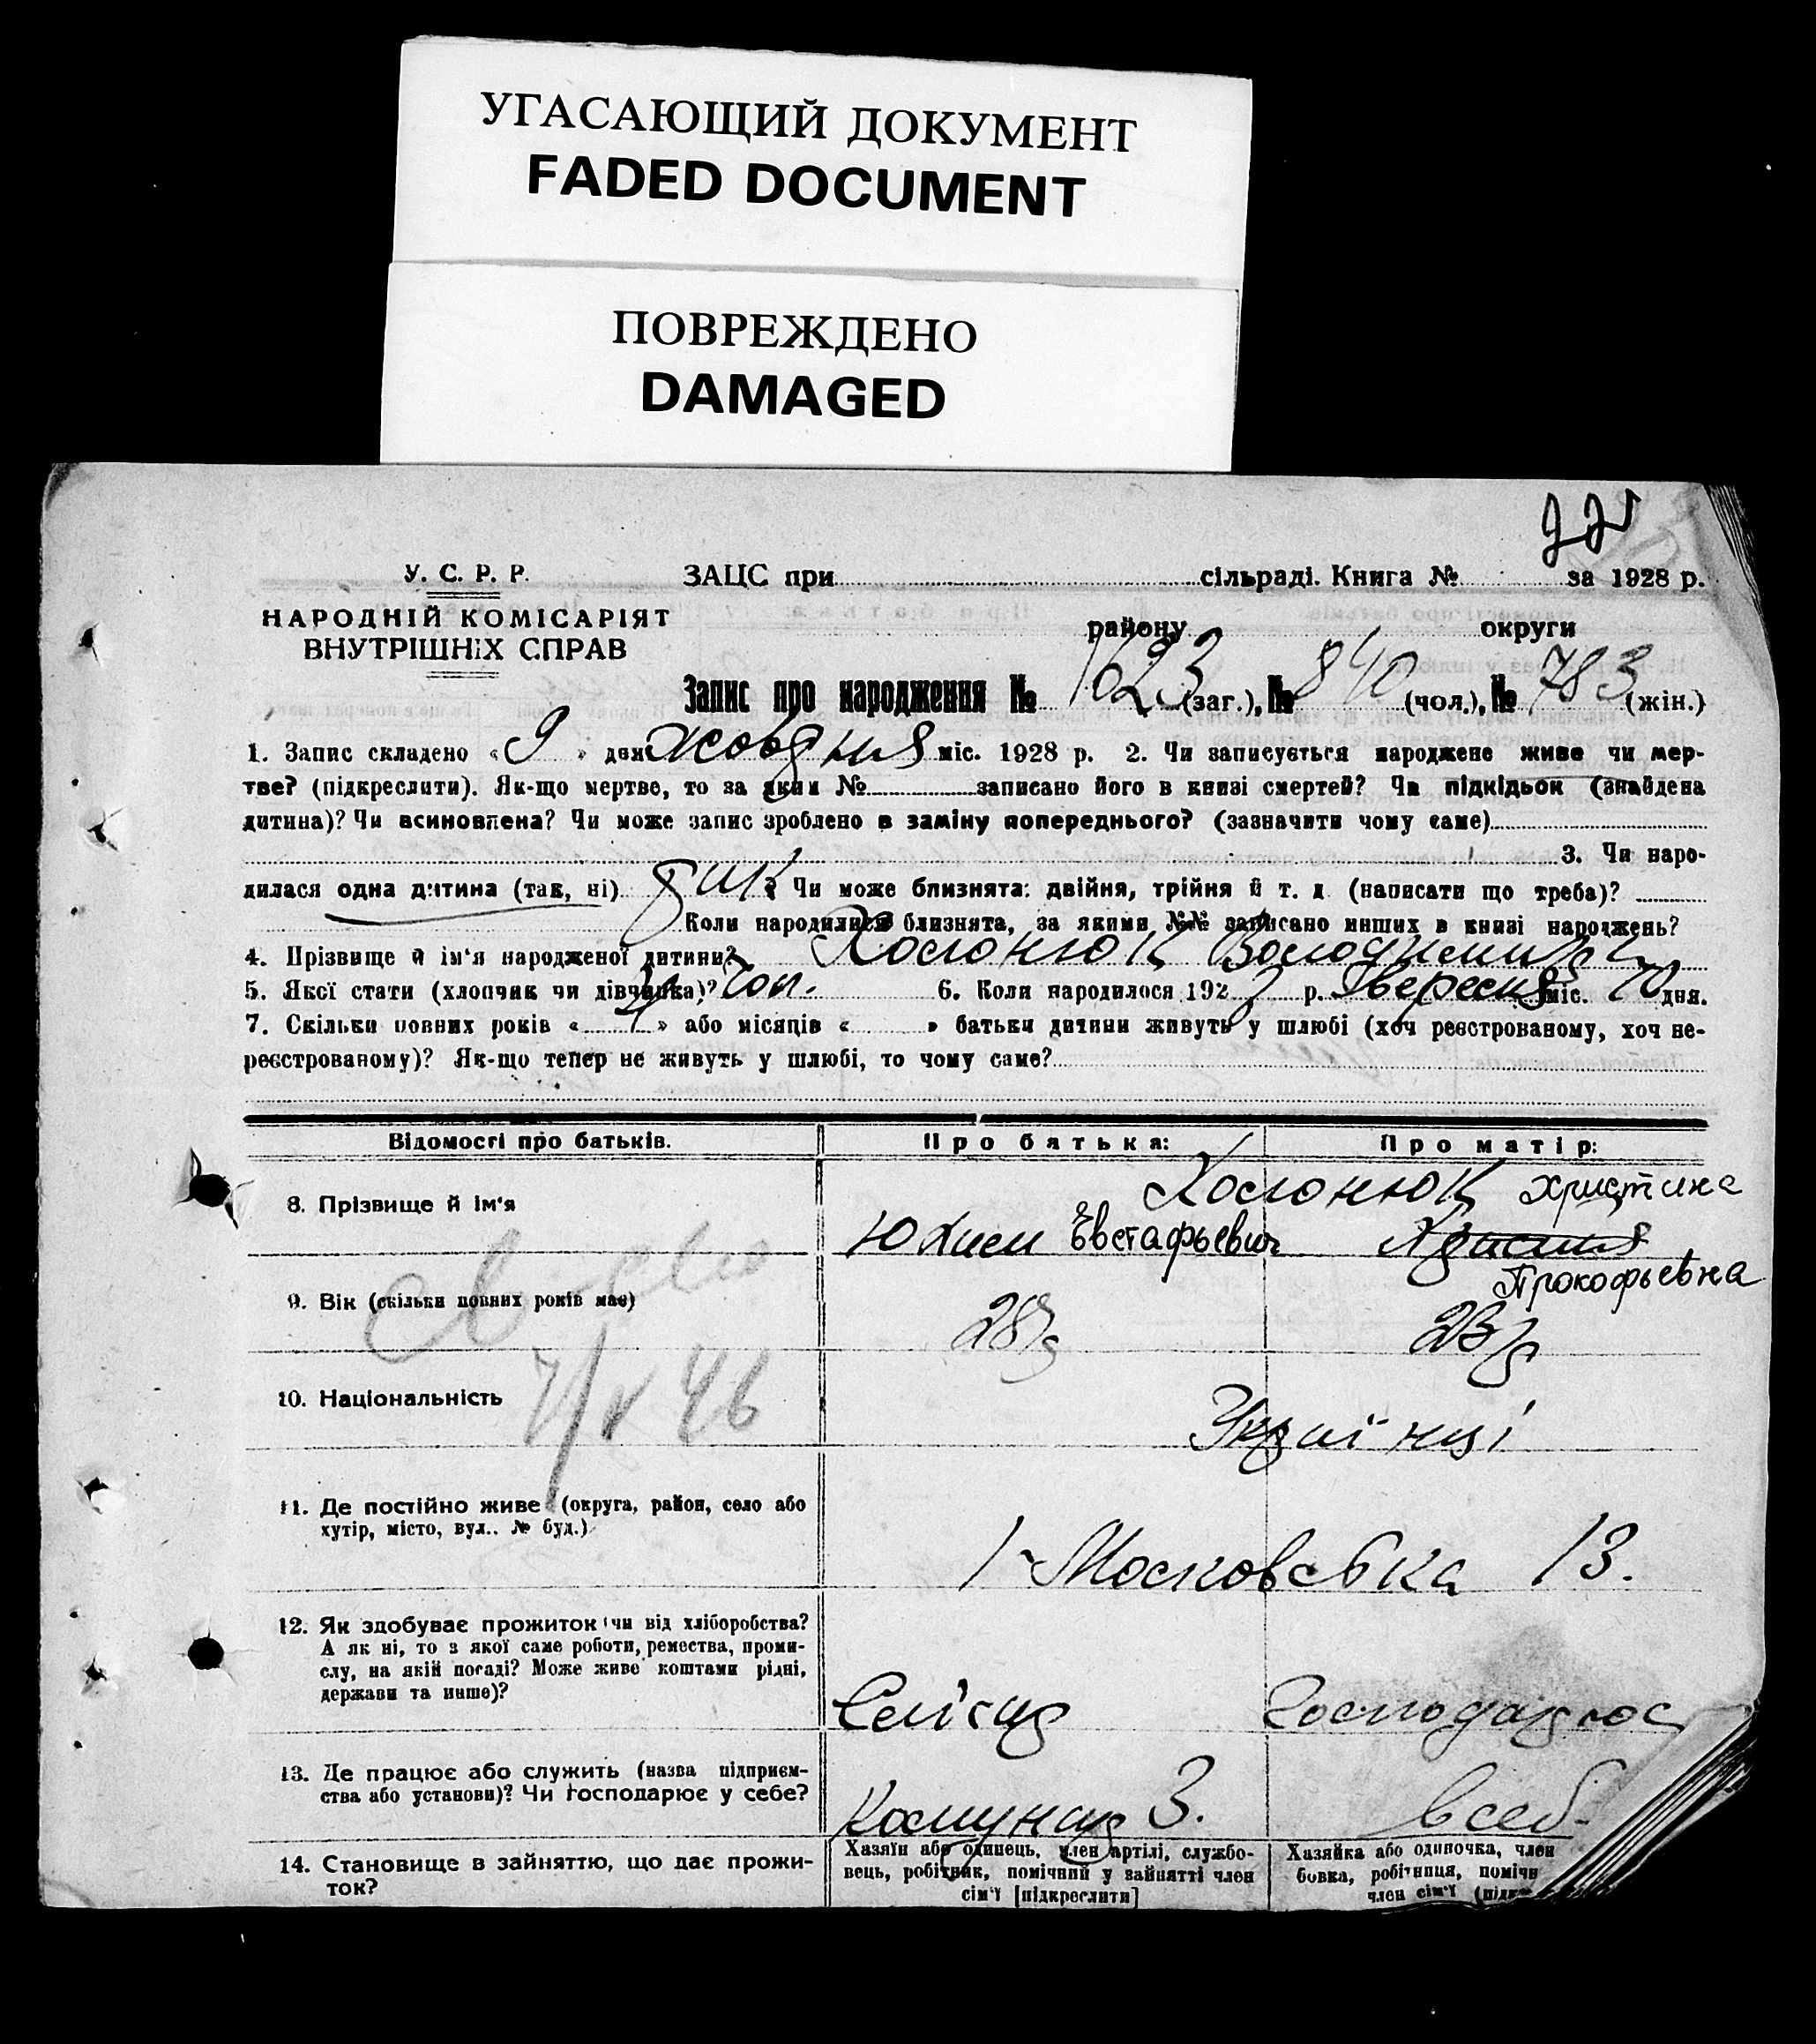 УГАСАЮЩИЙ ДОКУМЕНТ
FADED DOCUMENT
ПОВРЕЖДЕНО
DAMAGED
У. С. Р. Р.
НАРОДНІЙ КОМІСАРІЯТ
ВНУТРІШНІХ СПРАВ
ЗАЦС при сільраді. Книга № за 1928 р.
району округи
Запис про народження № 1623 (заг.), № 840 (чол.), № 783 (жін.)
1. Запис складено « 9 » дня жовтня міс. 1928 р. 2. Чи записується народжене живе чи мер-
тве? (підкреслити). Як-що мертве, то за яким № записано його в книзі смертей? Чи підкідьок (знайдена
дитина)? Чи всиновлена? Чи може запис зроблено в заміну попереднього? (зазначити чому саме)
3. Чи наро-
дилася одна дитина (так, ні) ? Чи може близнята: двійня, трійня й т. д. (написати що треба)?
Коли народилися близнята, за якими №№ записано инших в книзі народжень?
4. Прізвище й ім'я народженої дитини? Холонюк Володимир
5. Якої стати (хлопчик чи дівчинка)? Чол. 6. Коли народилося 192 р. Вересня міс. дня.
7. Скільки повних років « » або місяців « » батьки дитини живуть у шлюбі (хоч реєстрованому, хоч не-
реєстрованому)? Як-що тепер не живуть у шлюбі, то чому саме?
Відомості про батьків. Про батька: Про матір:
8. Прізвище й ім'я Холонюк Христина
Юхим Евстафьевич
Прокофьевна
9. Вік (скільки повних років має) 28 р 23 р
10. Національність Українці
7/V 46
11. Де постійно живе (округа, район, село або
хутір, місто, вул.. № буд.)
1 Московська 13.
12. Як здобуває прожиток (чи від хліборобства?
А як ні, то з якої саме роботи, ремества, проми-
слу, на якій посаді? Може живе коштами рідні,
держави та инше)?
Господарює
13. Де працює або служить (назва підприєм-
ства або установи)? Чи господарює у себе?
3. в себ
14. Становище в зайняттю, що дає прожи-
ток?
Хазяїн або одинець, член артілі, службо-
вець, робітник, помічний у зайнятті член
сім'ї [підкреслити]
Хазяйка або одиночка, член
бовка, робітниця, помічн
член сім'ї (підк